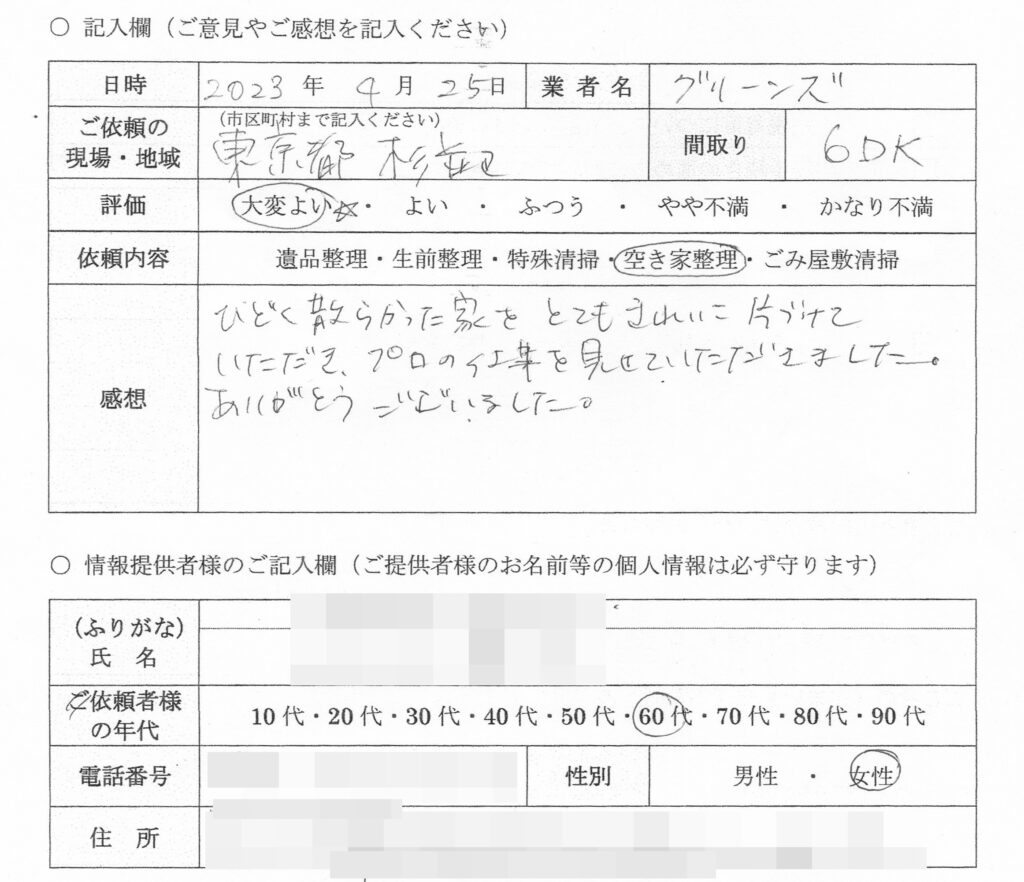 ○ 記入欄（ご意見やご感想を記入ください）
日時 2023 年 4 月 25 日 業者名 グリーンズ
ご依頼の現場・地域 （市区町村まで記入ください） 東京都 杉並区 間取り 6DK
評価 大変よい☆・ よい ・ ふつう ・ やや不満 ・ かなり不満
依頼内容 遺品整理・生前整理・特殊清掃・空き家整理・ごみ屋敷清掃
感想
ひどく散らかった家を とてもきれいに片づけて
いただき、プロの仕事を見せていただきました。
ありがとうございました。
○ 情報提供者様のご記入欄（ご提供者様のお名前等の個人情報は必ず守ります）
（ふりがな）
氏 名
ご依頼者様
の年代 10代・20代・30代・40代・50代・60代・70代・80代・90代
電話番号 性別 男性 ・ 女性
住 所